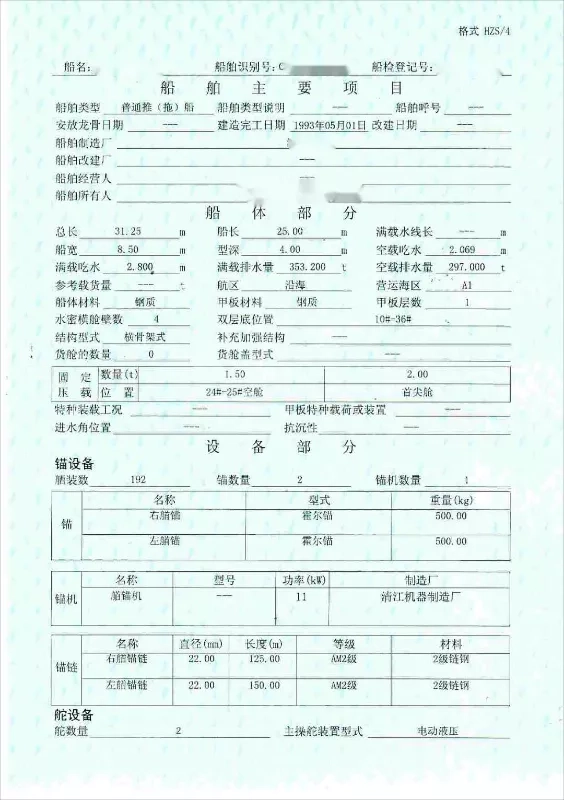 格式 HZS/4
船名: 船舶识别号: C 船检登记号:
船舶主要项目
船舶类型 普通推(拖)船 船舶类型说明 --- 船舶呼号 ---
安放龙骨日期 --- 建造完工日期 1993年05月01日 改建日期 ---
船舶制造厂
船舶改建厂 ---
船舶经营人 ---
船舶所有人
船体部分
总长 31.25 m 船长 25.00 m 满载水线长 --- m
船宽 8.50 m 型深 4.00 m 空载吃水 2.069 m
满载吃水 2.800 m 满载排水量 353.200 t 空载排水量 297.000 t
参考载货量 --- t 航区 沿海 营运海区 A1
船体材料 钢质 甲板材料 钢质 甲板层数 1
水密横舱壁数 4 双层底位置 10#-36#
结构型式 横骨架式 补充加强结构 ---
货舱的数量 0 货舱盖型式 ---
固定 数量(t) 1.50 2.00
压载 位置 24#-25#空舱 首尖舱
特种装载工况 --- 甲板特种载荷或装置 ---
进水角位置 --- 抗沉性 ---
设备部分
锚设备
舾装数 192 锚数量 2 锚机数量 1
名称 型式 重量(kg)
锚 右艏锚 霍尔锚 500.00
左艏锚 霍尔锚 500.00
名称 型号 功率(kW) 制造厂
锚机 艏锚机 --- 11 清江机器制造厂
名称 直径(mm) 长度(m) 等级 材料
锚链 右艏锚链 22.00 125.00 AM2级 2级链钢
左艏锚链 22.00 150.00 AM2级 2级链钢
舵设备
舵数量 2 主操舵装置型式 电动液压